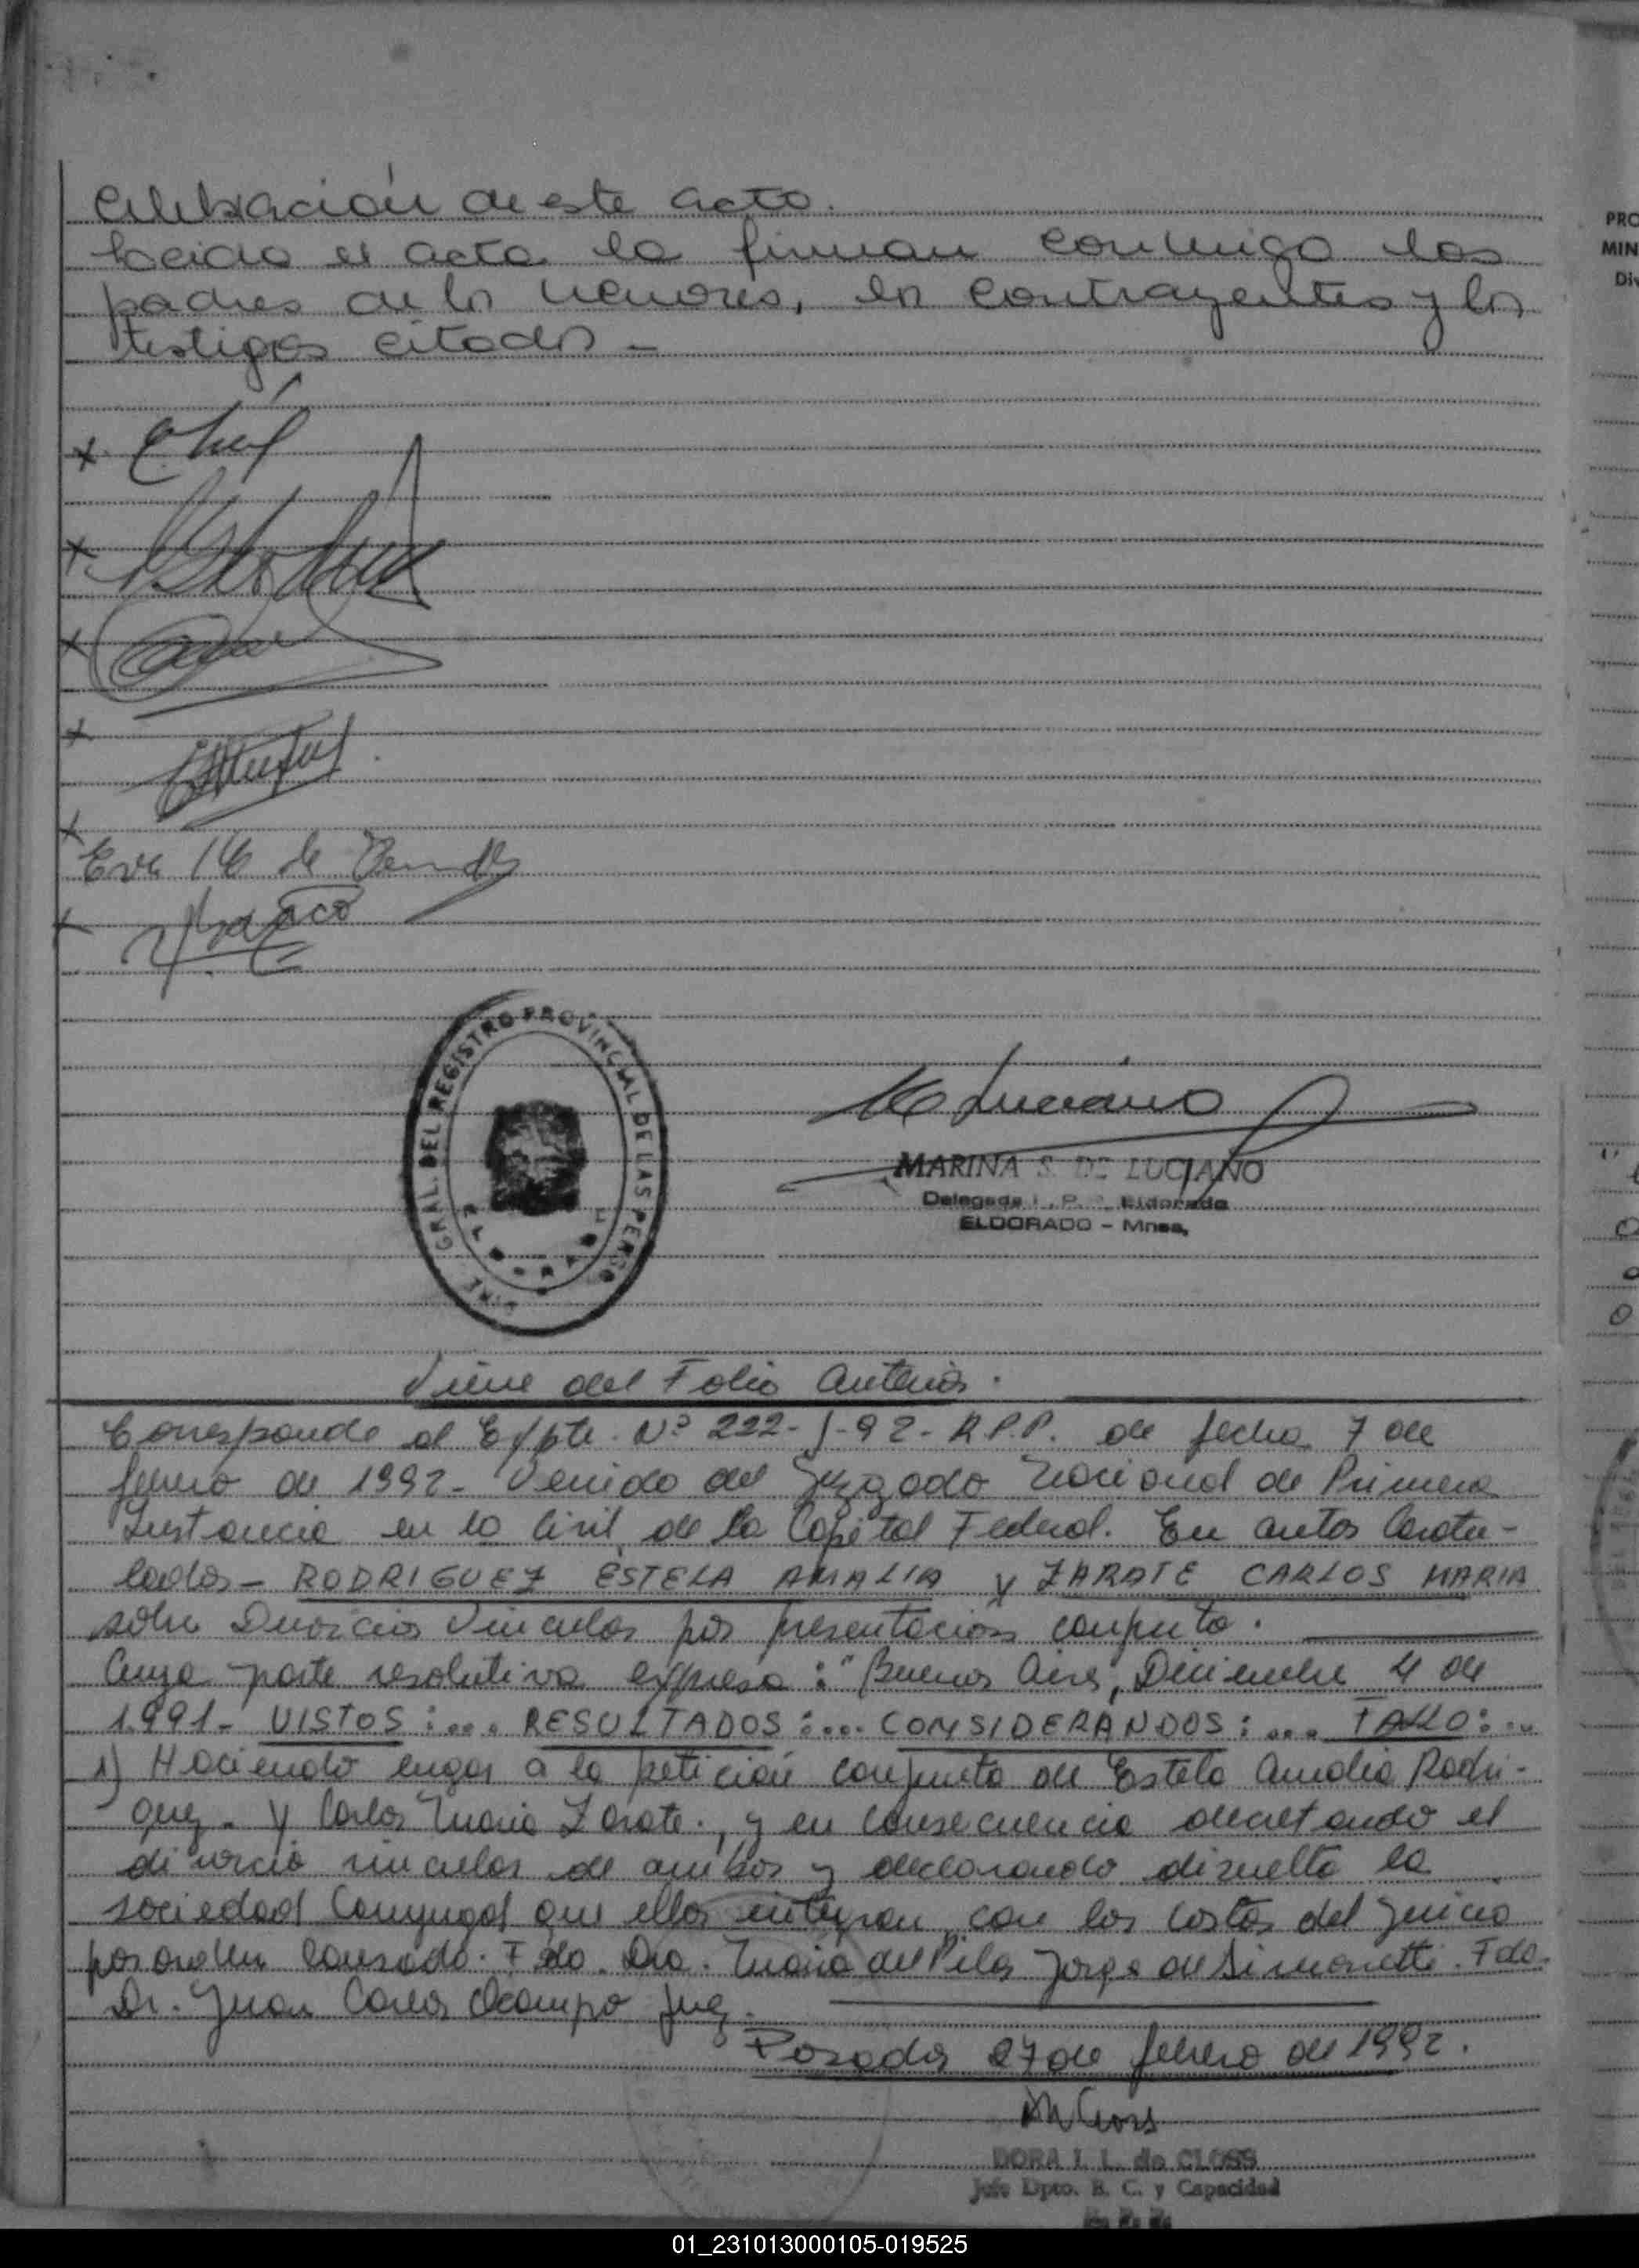 celebración de este acto.
Leida el acta la firman conmigo los
padres de los menores, los contrayentes y los
testigos citados -
Eva M de
MARINA S. DE LUCIANO
Delegada R. P. P. Eldorado
ELDORADO - Mnes.
GRAL. DEL REGISTRO PROVINCIAL DE LAS PERSO
ELDORADO
Viene del Folio anterior.
Corresponde al Expte. Nº 222-J-92- R.P.P. de fecha 7 de
febrero de 1992- Venido del Juzgado Nacional de Primera
Instancia en lo Civil de la Capital Federal. En autos Caratu-
lados- RODRIGUEZ ESTELA AMALIA y ZARATE CARLOS MARIA
sobre Divorcio Vincular por presentacion conjunta.
Cuya parte resolutiva expresa: "Buenos Aires, Diciembre 4 de
1991- VISTOS:... RESULTADOS:... CONSIDERANDOS:... FALLO:...
1) Haciendo lugar a la petición conjunta de Estela Amalia Rodri-
guez. y Carlos Maria Zarate., y en consecuencia decretando el
divorcio vincular de ambos y declarando disuelta la
sociedad Conyugal que ellos integran, con las costas del juicio
por orden Causado. Fdo. Dra. Maria del Pilar Jorge de Simonetti. Fdo.
Dr. Juan Carlos Ocampo Juez.
Posadas 27 de febrero de 1992.
DORA I. L. de CLOSS
Jefe Dpto. E. C. y Capacidad
R. P. P.
PRO
MIN
Div
01_231013000105-019525